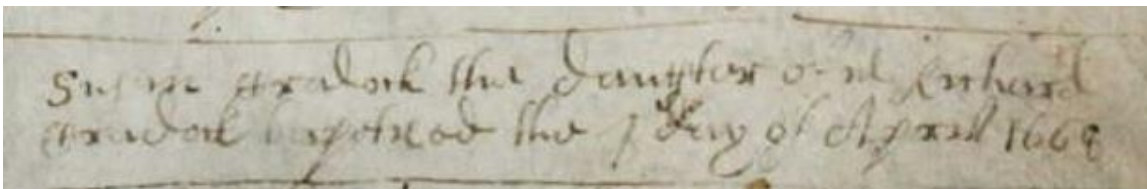 Susan Cradock the daughter of Richard
Cradock the day of April 1668